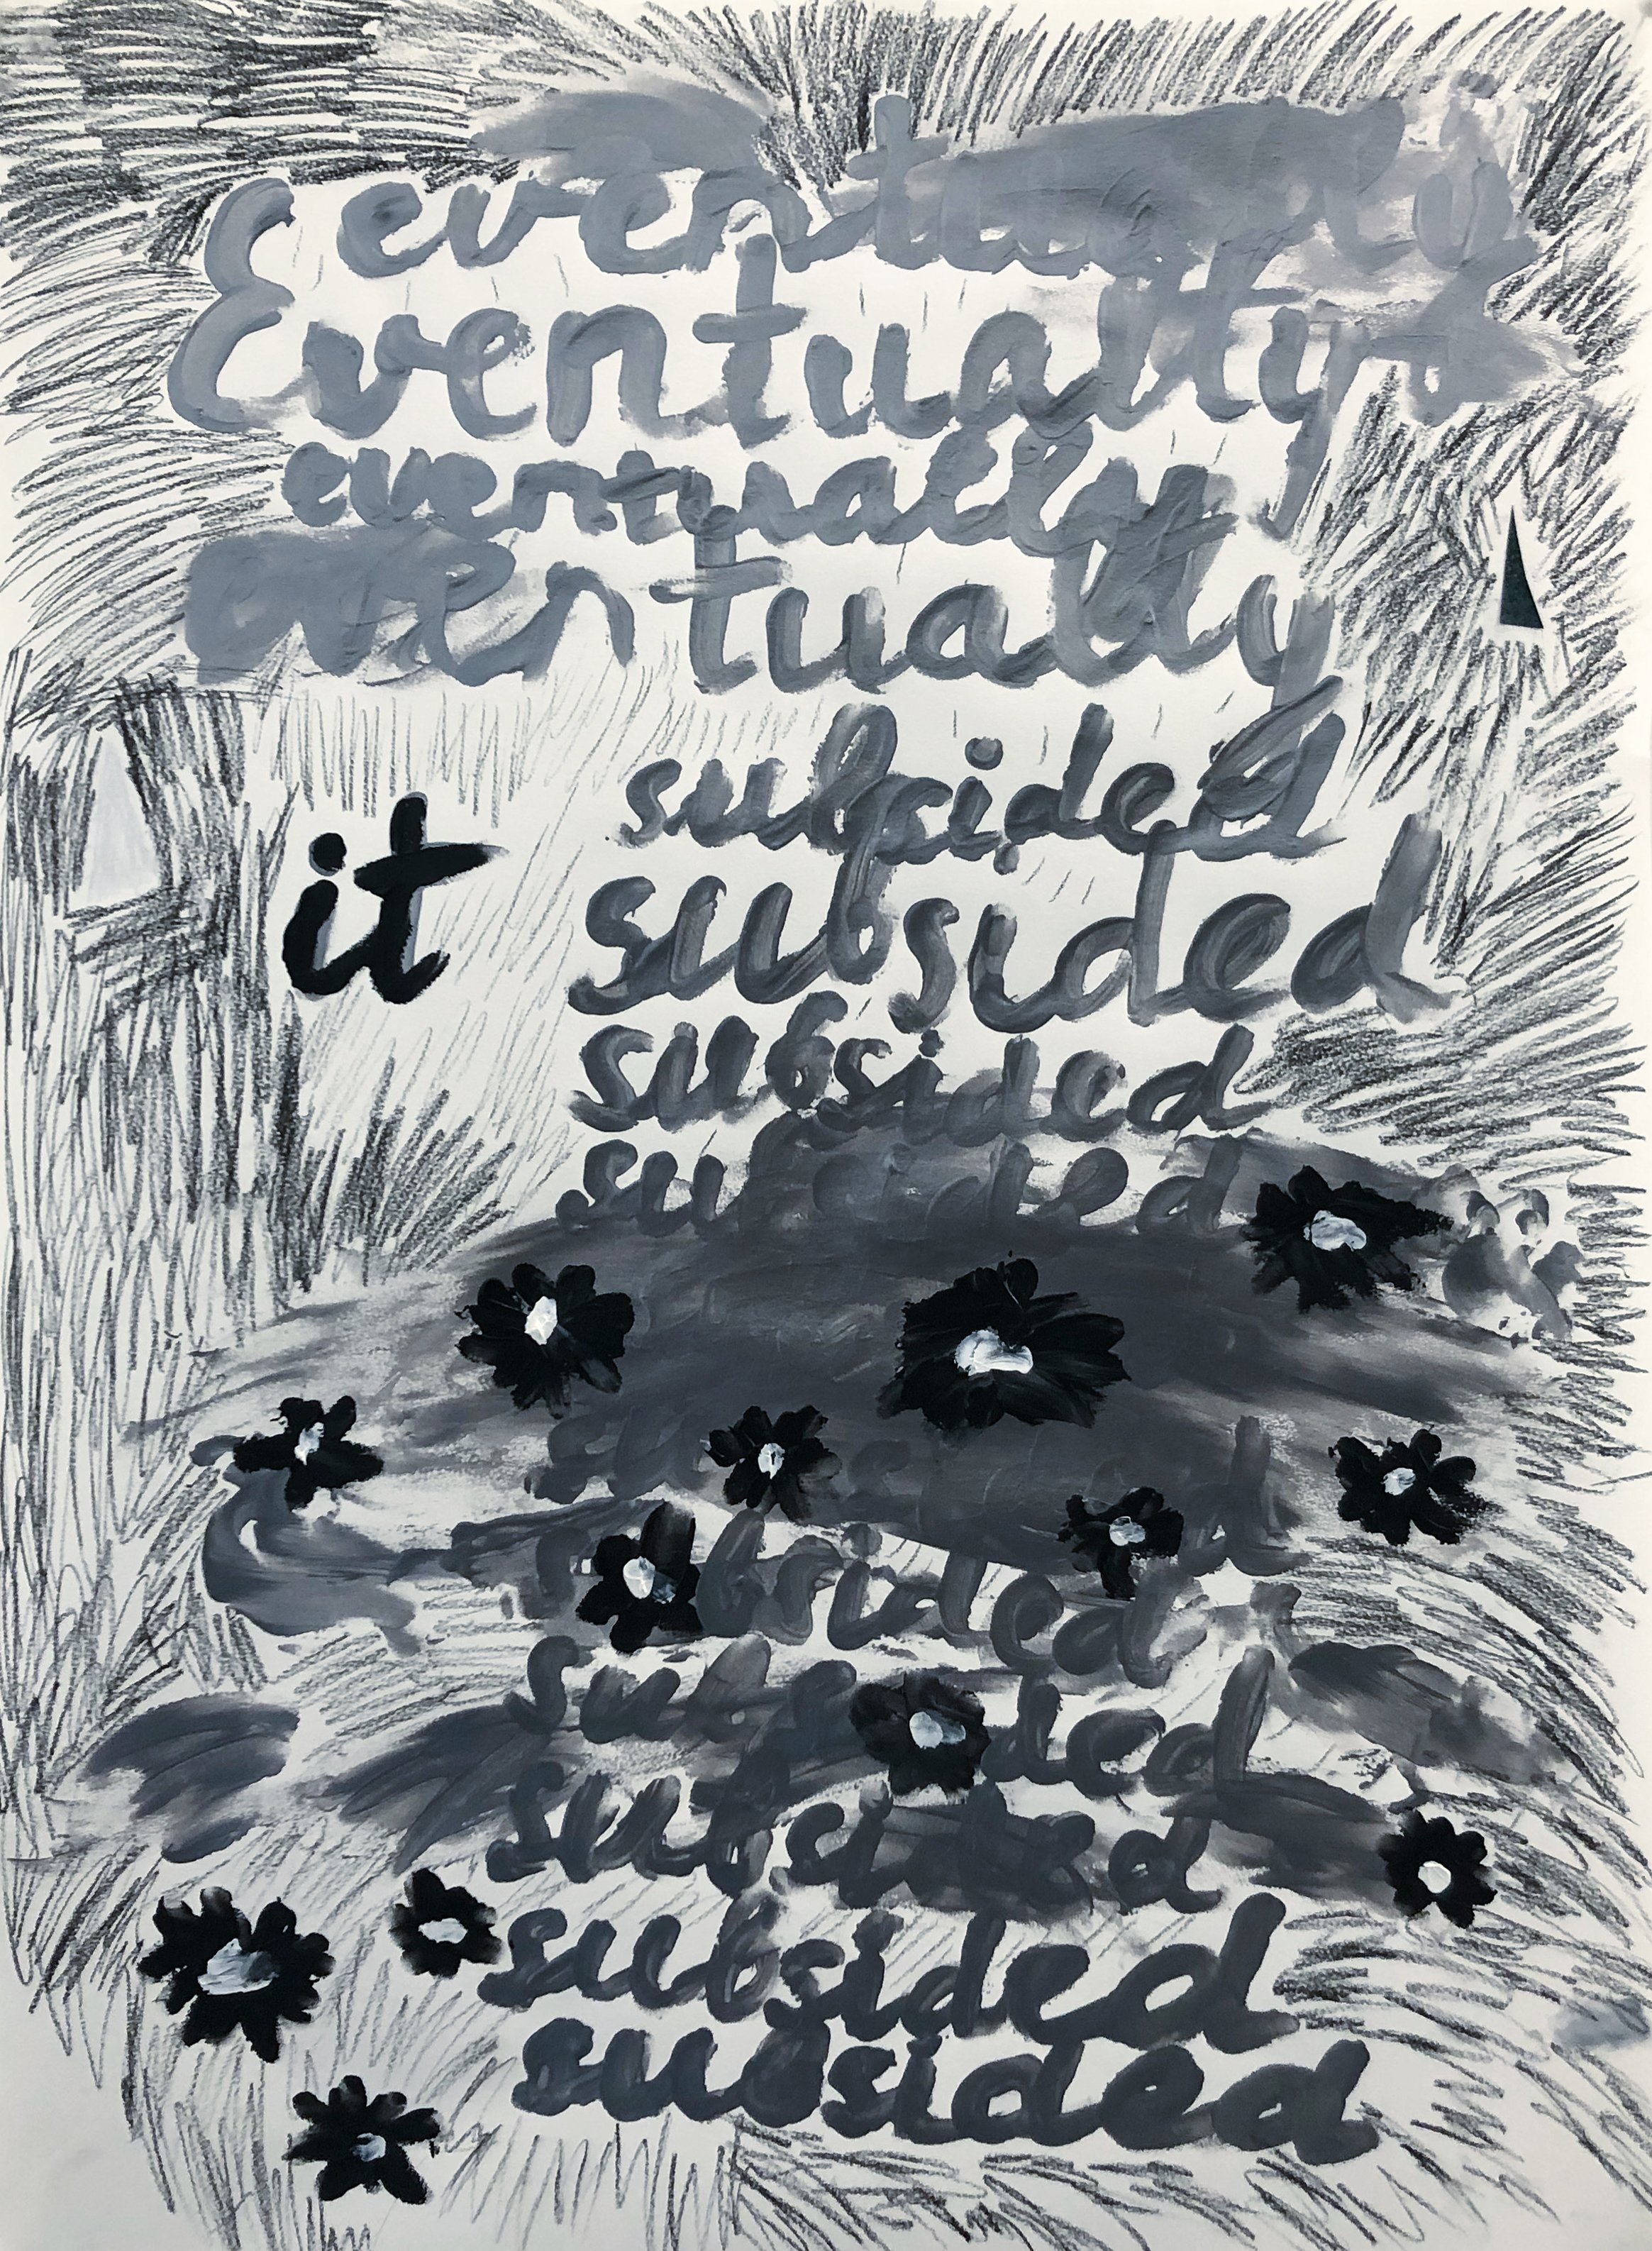 eventually
Eventually
eventually
eventually
subsided
it subsided
subsided
subsided
subsided
subsided
subsided
subsided
subsided